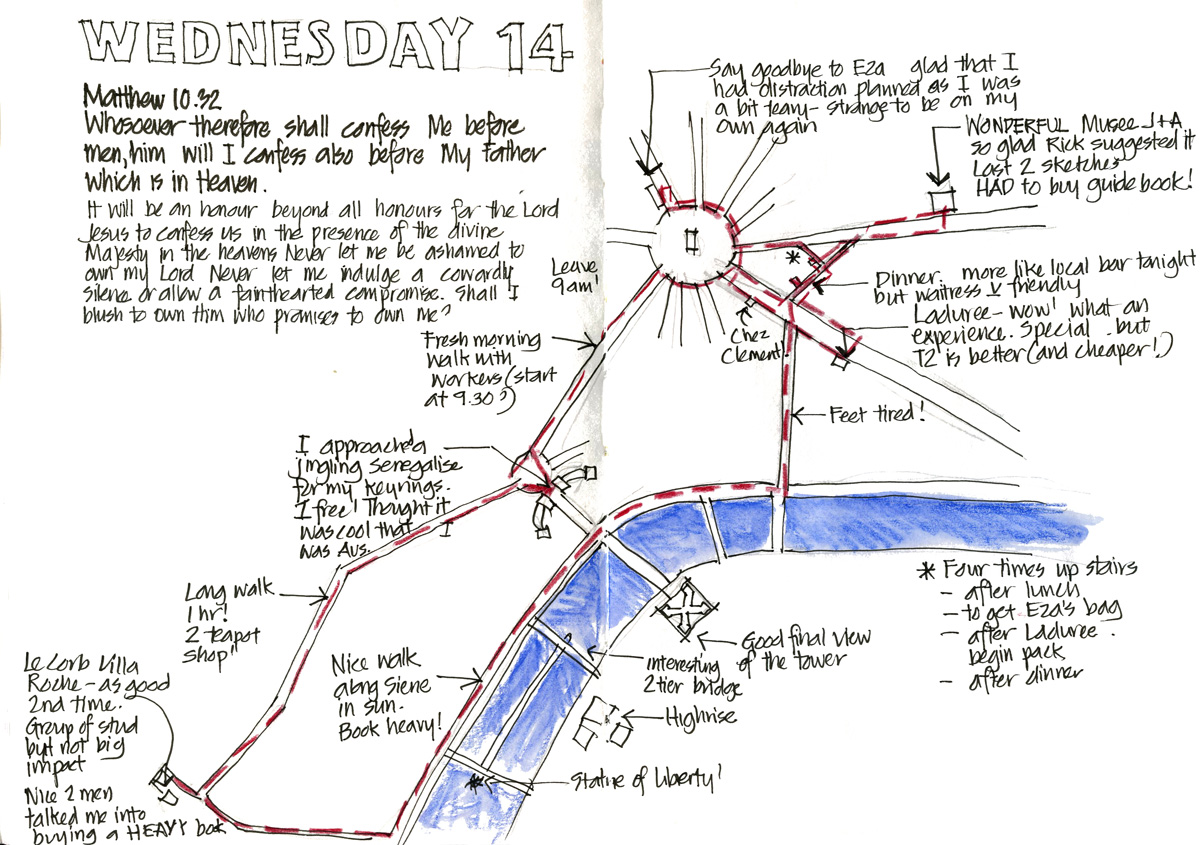 WEDNESDAY 14
Matthew 10.32
Whosoever therefore shall confess Me before
men, him will I confess also before My Father
which is in Heaven.
It will be an honour beyond all honours for the Lord
Jesus to confess us in the presence of the divine
Majesty in the heavens Never let me be ashamed to
own my Lord Never let me indulge a cowardly
silence or allow a fainthearted compromise. Shall I
blush to own Him who promises to own me?
Say goodbye to Eza glad that I
had distraction planned as I was
a bit teary - strange to be on my
own again
WONDERFUL Musee J+A
so glad Rick suggested it
Last 2 sketches
HAD to buy guide book!
Leave
9am!
Dinner. more like local bar tonight
but waitress v friendly
Laduree - wow! what an
experience. Special but
T2 is better (and cheaper!)
Chez
Clement!
Fresh morning
walk with
workers (start
at 9.30?)
Feet tired!
I approached a
jingling Senegalise
for my keyrings.
1 free! Thought it
was cool that I
was Aus.
Long walk
1 hr!
2 teapot
shop!!
* Four times up stairs
- after lunch
- to get Eza's bag
- after Laduree.
begin pack
- after dinner
Good final view
of the tower
Interesting
2 tier bridge
Nice walk
along Siene
in sun.
Book heavy!
Highrise
Le Corb Villa
Roche - as good
2nd time.
Group of stud
but not big
impact
Nice 2 men
talked me into
buying a HEAVY book
Statue of Liberty!